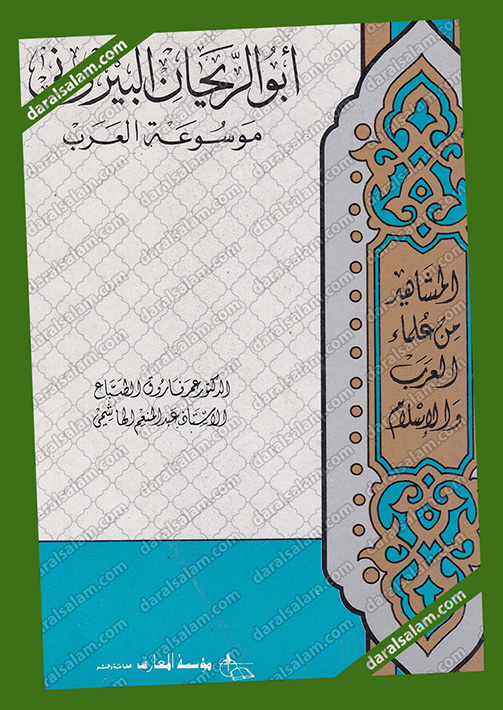 أبو الريحان البيروني
موسوعة العرب
المشاهير
من علماء
العرب
والإسلام
الدكتور عمر فاروق الطباع
الأستاذ عبد المنعم الهاشمي
مؤسسة المعارف للطباعة والنشر
daralsalam.com
daralsalam.com